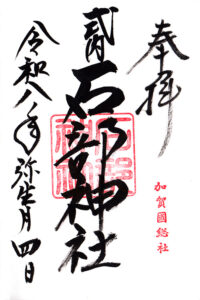 奉拝
加賀國総社
式内
石部神社
令和八年弥生月四日